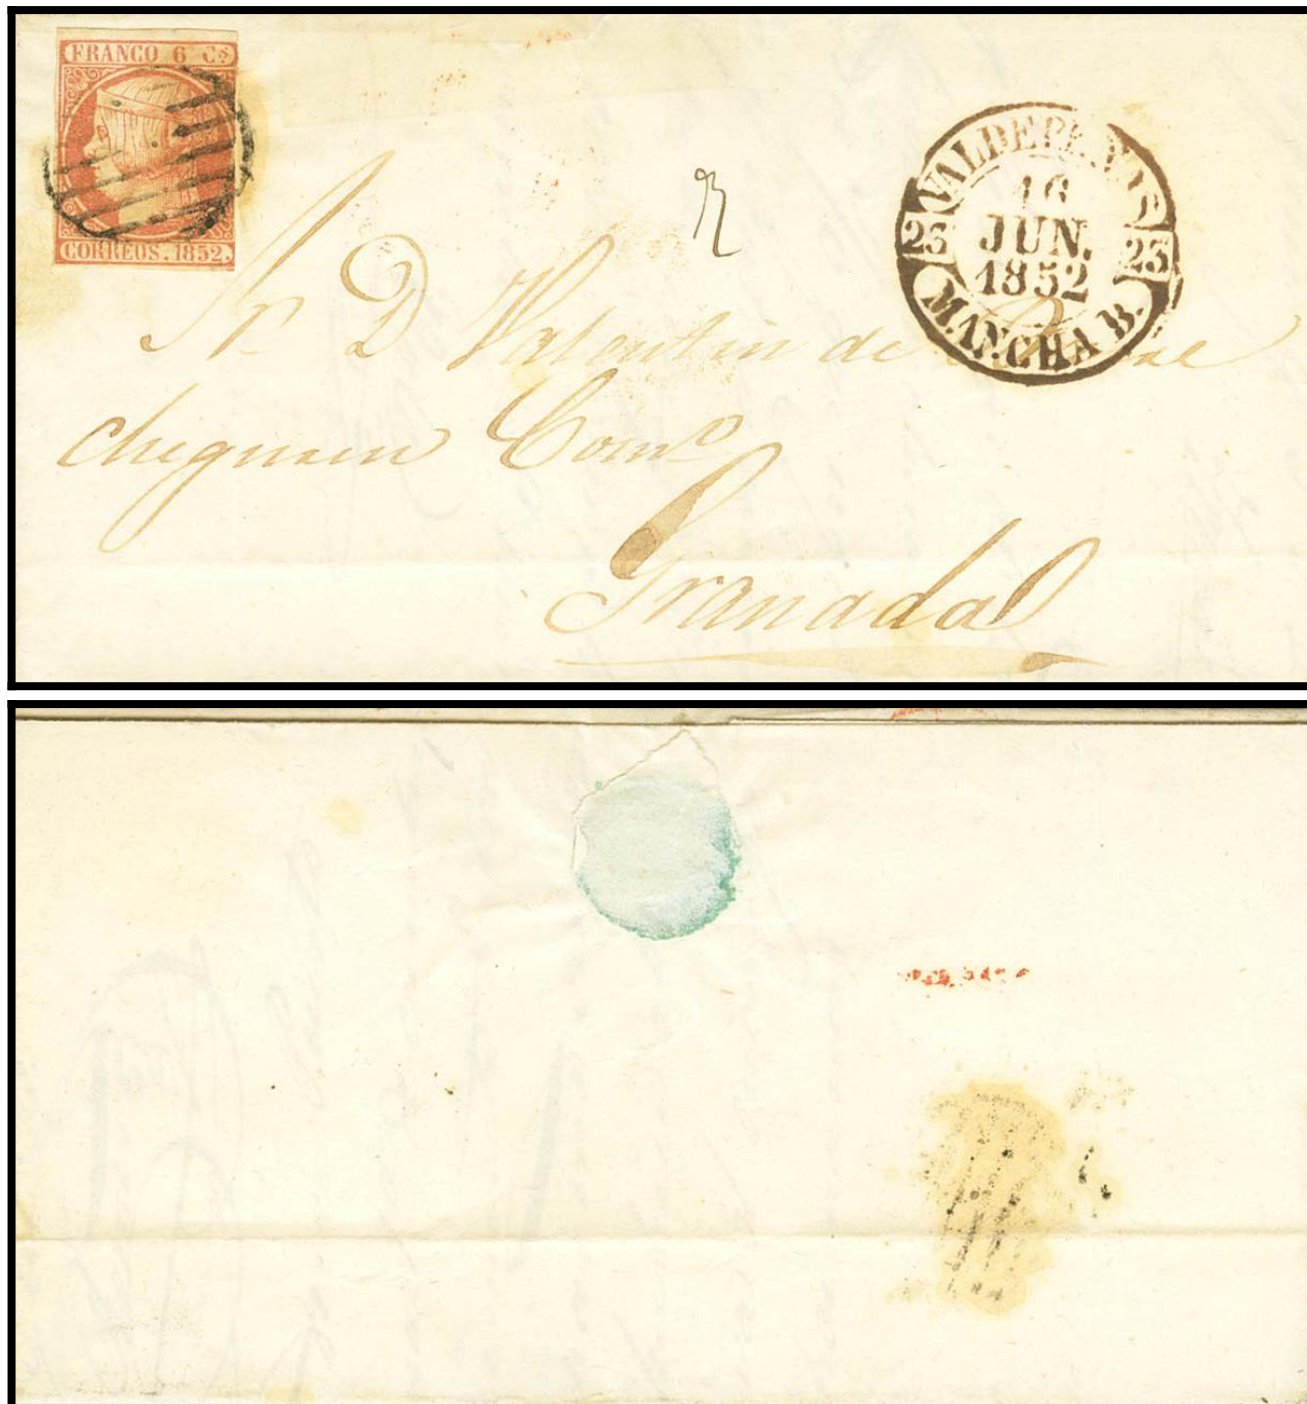 FRANCO 6 Cs
CORREOS. 1852.
VALDEPEÑAS
16
JUN.
1852
23 23
MANCHA B.
Sr D Valentin de
Echeguren Como
Granada